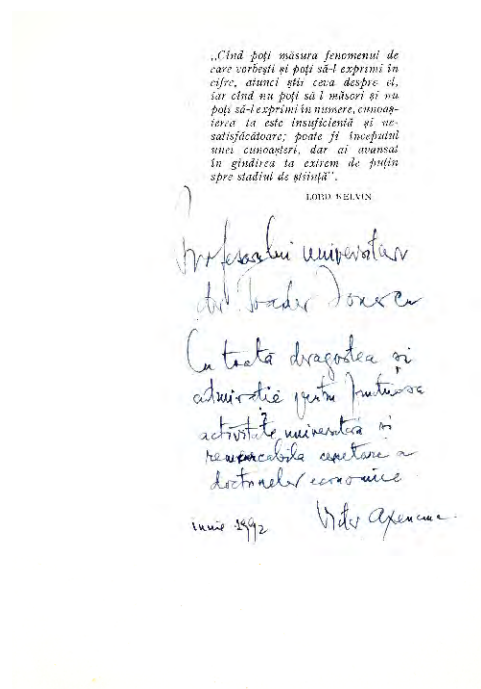 „Cînd poți măsura fenomenul de
care vorbești și poți să-l exprimi în
cifre, atunci știi ceva despre el,
iar cînd nu poți să-l măsori și nu
poți să-l exprimi în numere, cunoaș-
terea ta este insuficientă și ne-
satisfăcătoare; poate fi începutul
unei cunoașteri, dar ai avansat
în gîndirea ta extrem de puțin
spre stadiul de știință".
LORD KELVIN
Profesorului universitar
dr. Toader Ionescu
Cu toată dragostea și
admirație pentru fructuoasa
activitate universitară și
remarcabila cercetare a
doctrinelor economice
iunie 1992 Victor Axenciuc